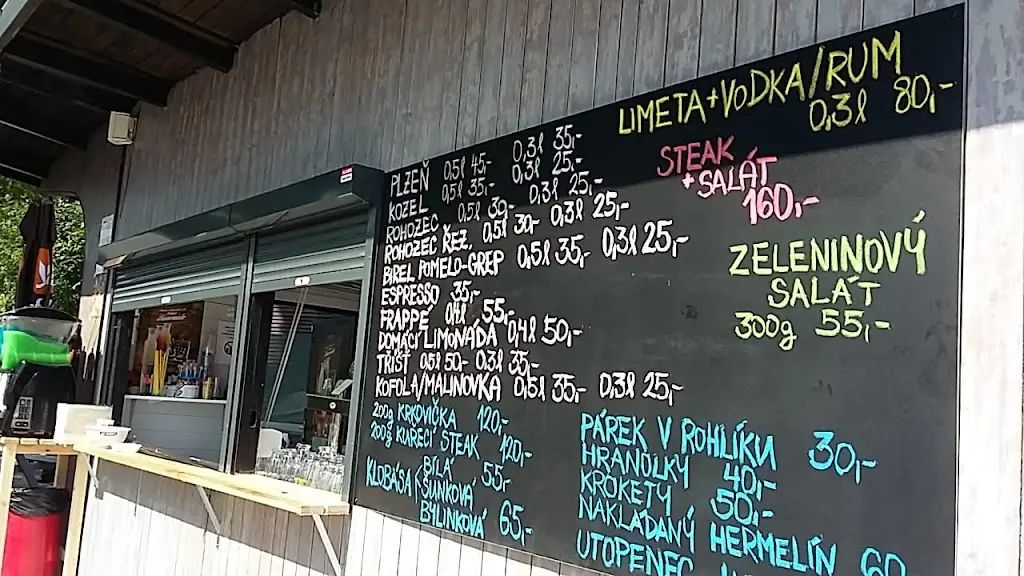 LIMETA+VODKA/RUM
0,3l 80,-
PLZEŇ 0,5l 45,- 0,3l 35,-
KOZEL 0,5l 35,- 0,3l 25,-
ROHOZEC 0,5l 30,- 0,3l 25,-
ROHOZEC ŘEZ. 0,5l 30,- 0,3l 25,-
BIREL POMELO-GREP 0,5l 35,- 0,3l 25,-
ESPRESSO 35,-
FRAPPÉ 0,4l 55,-
DOMÁCÍ LIMONÁDA 0,4l 50,-
TŘIST 0,5l 50,- 0,3l 35,-
KOFOLA/MALINOVKA 0,5l 35,- 0,3l 25,-
STEAK
+ SALÁT
160,-
ZELENINOVÝ
SALÁT
300g 55,-
200g KRKOVIČKA 120,-
200g KUŘECÍ STEAK 120,-
KLOBÁSA BÍLÁ
ŠUNKOVÁ 55,-
BYLINKOVÁ 65,-
PÁREK V ROHLÍKU 30,-
HRANOLKY 40,-
KROKETY 50,-
NAKLÁDANÝ HERMELÍN 60
UTOPENEC